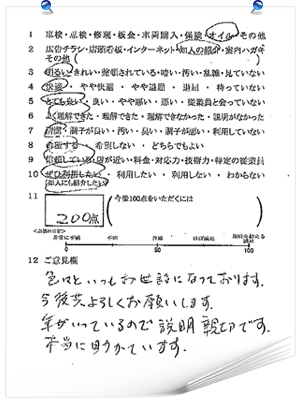 1 車検・点検・修理・板金・車両購入・保険・オイル・その他
2 広告チラシ・店頭看板・インターネット・知人の紹介・案内ハガキ
その他(
3 明るい・きれい・整頓されている・暗い・汚い・乱雑・見ていない
4 快適・やや快適・やや退屈・退屈・待っていない
5 とても良い・良い・やや悪い・悪い・従業員と会っていない
6 よく理解できた・理解できた・理解できなかった・説明がなかった
7 清潔・調子が良い・汚い・臭い・調子が悪い・利用していない
8 希望する・希望しない・どちらでもよい
9 信頼している・店が近い・料金・対応力・技術力・特定の従業員
10 ぜひ利用したい・利用したい・利用しない・わからない
(知人にも紹介したい)
11 (今後100点をいただくには
200点
非常に不満 不満 普通 期待を超える
0 50 100
12 ご意見欄
色々といつもお世話になっております。
今後共よろしくお願いします。
年がいっているので説明親切です。
本当に助かっています。